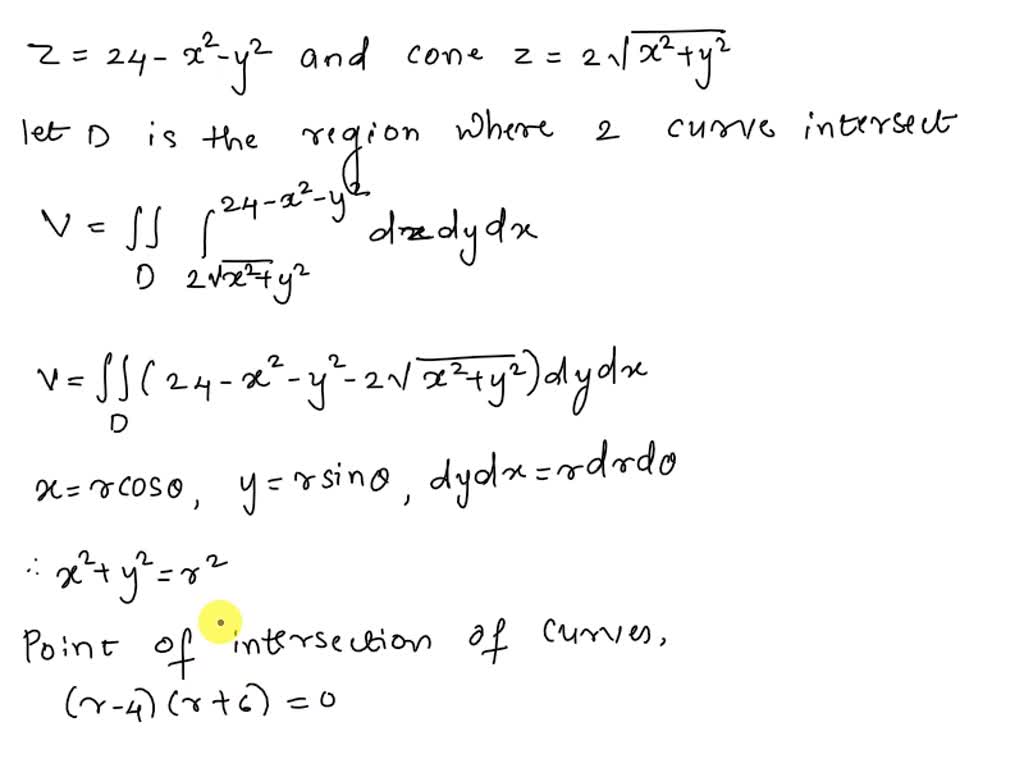 z = 24 - x² - y² and cone z = 2√(x²+y²)
let D is the region where 2 curve intersect
V = ∬_D ∫_{2√(x²+y²)}^{24-x²-y²} dz dy dx
V = ∬_D (24 - x² - y² - 2√(x²+y²)) dy dx
x = r cosθ, y = r sinθ, dy dx = r dr dθ
∴ x² + y² = r²
Point of intersection of curves,
(r-4)(r+6) = 0